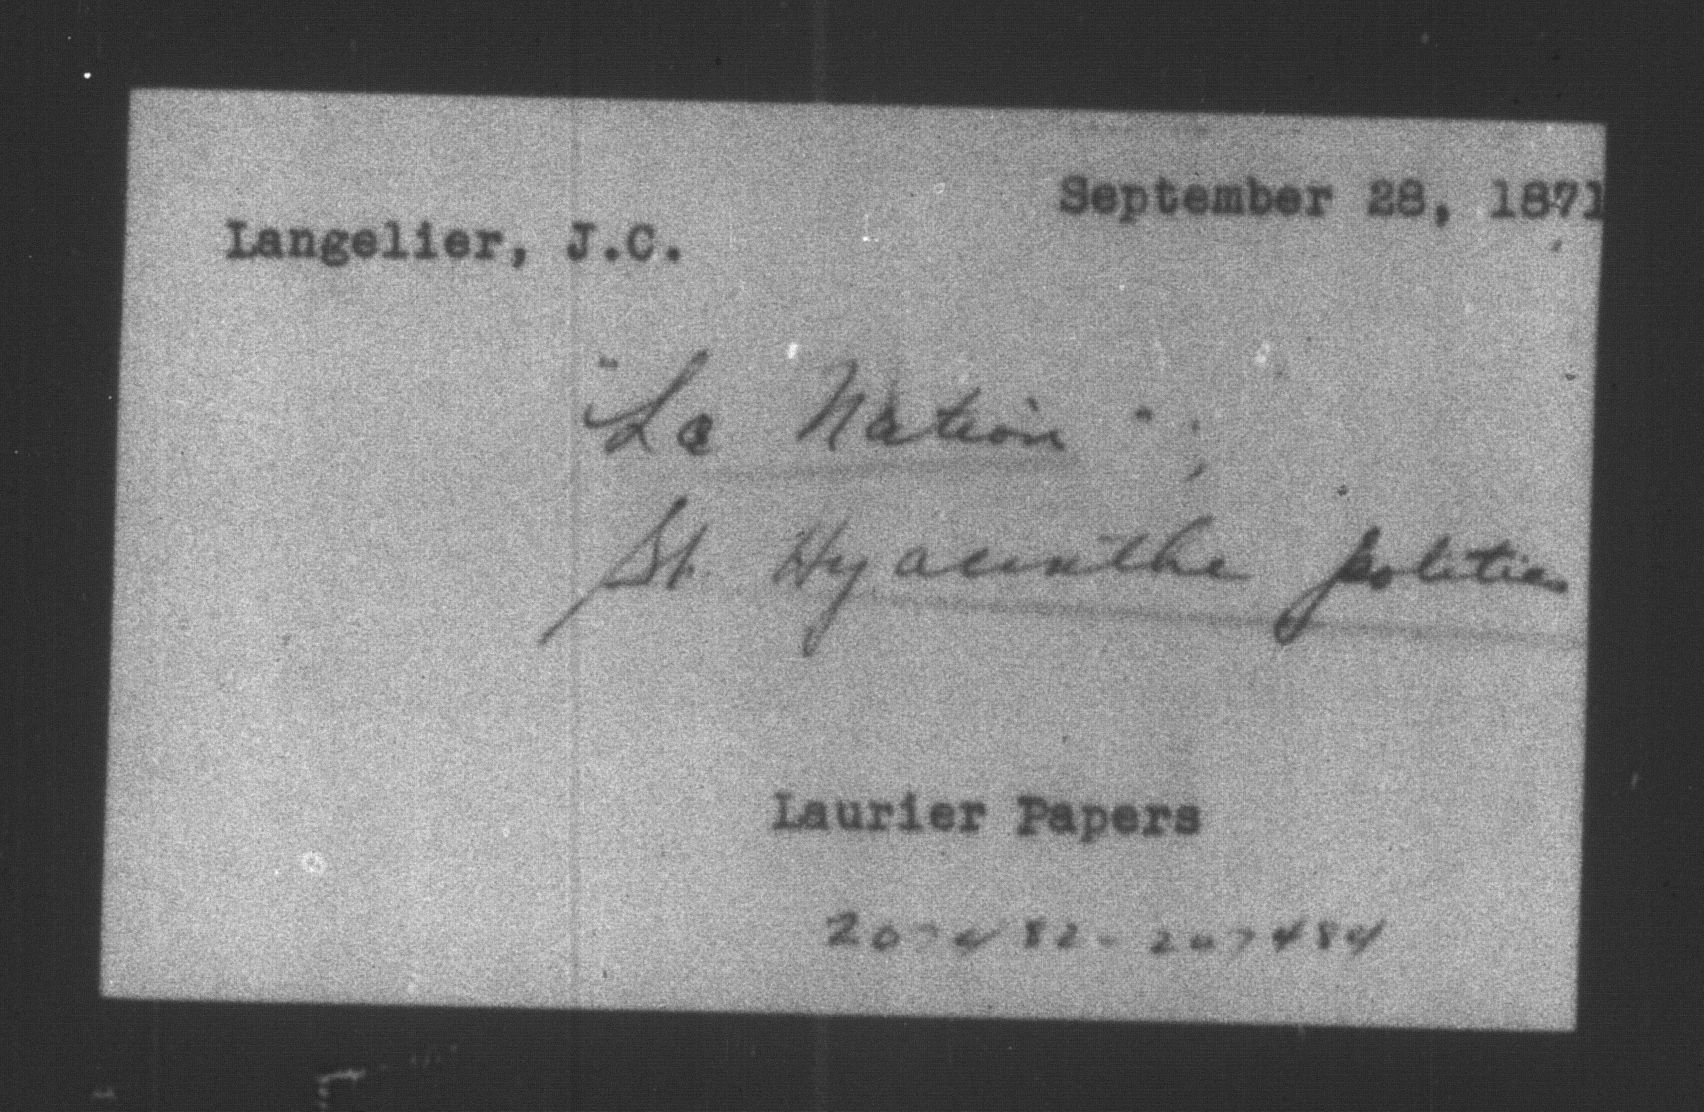 September 28, 1871
Langelier, J.C.
"La Nation";
St. Hyacinthe politics
Laurier Papers
207482-207484